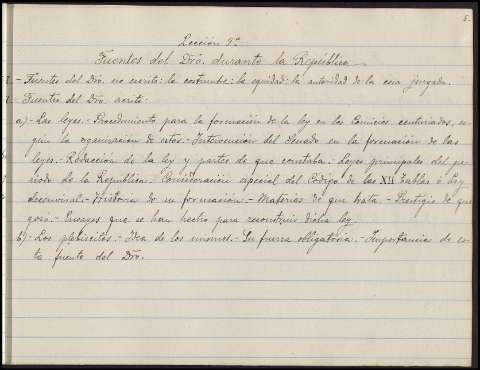 5.
Lección 3ª
Fuentes del Dro. durante la República
1. - Fuentes del Dro. no escrito: la costumbre: la equidad: la autoridad de la cosa juzgada.
2. - Fuentes del Dro. escrito.
a) - Las leyes. - Procedimiento para la formación de la ley en los Comicios centuriados, se-
gún la organización de estos. - Intervención del Senado en la formación de las
leyes. - Redacción de la ley y partes de que constaba. - Leyes principales del pe-
riodo de la República. Consideración especial del Código de las XII Tablas ó Ley
decenviral. - Historia de su formación. - Materias de que trata. - Prestigio de que
gozó. - Ensayos que se han hecho para reconstruir dicha ley.
b) - Los plebiscitos. - Idea de los mismos. - Su fuerza obligatoria. - Importancia de es-
ta fuente del Dro.